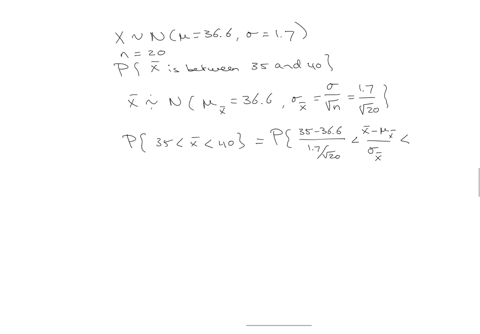 X ~ N(μ=36.6, σ=1.7)
n=20
P{ x̄ is between 35 and 40}
x̄ ~̇ N( μ_x̄ = 36.6, σ_x̄ = σ/√n = 1.7/√20 }
P{ 35 < x̄ < 40} = P{ (35-36.6)/(1.7/√20) < (x̄-μ_x̄)/σ_x̄ <